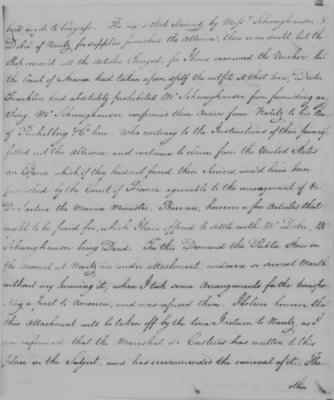 back made to Congress. The one is that claimed by Messrs. Schweighauser &
Dobré of Nantz for supplies furnished the Alliance, there is no doubt but the
Ship received all the Articles Charged, for I have examined the Vouchers but
the Court of France had taken upon itself the outfit at that time, Doctor
Franklin had absolutely prohibited Mr. Schweighauser from furnishing any
thing. Mr. Schweighauser confirmed these orders from Nantz to his House
of Puchelberg & Co. here. Who contrary to the Instructions of their principal
fitted out the Alliance and continue to claim from the United States
an Expence which if they had not forced their Services, wou'd have been
furnished by the Court of France agreeable to the arrangement of M.
De Sartine the Marine Minister. There are, however a few Articles that
ought to be paid for, which I have offered to settle with Mr. Dobré, Mr.
Schweighauser being Dead. For this Demand the Public Stores in
the arsenal at Nantz are under attachment, and were so several Months
without my knowing it, when I took some Arrangements for the transpor
ting a part to America, and was refused them. I believe however that
this Attachment will be taken off by the time I return to Nantz, as I
am informed that the Mareshal de Castries has written to this
place on the Subject, and has recommended the removal of it. The
other